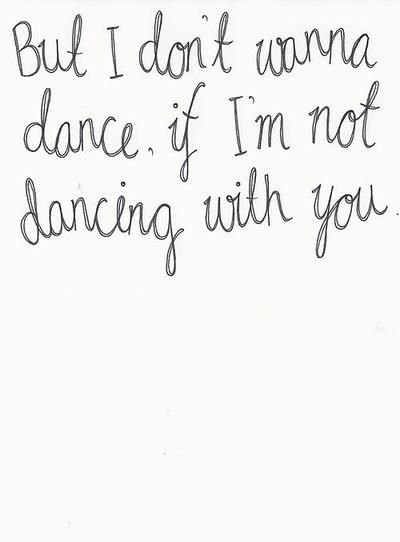 But I don't wanna
dance, if I'm not
dancing with you.